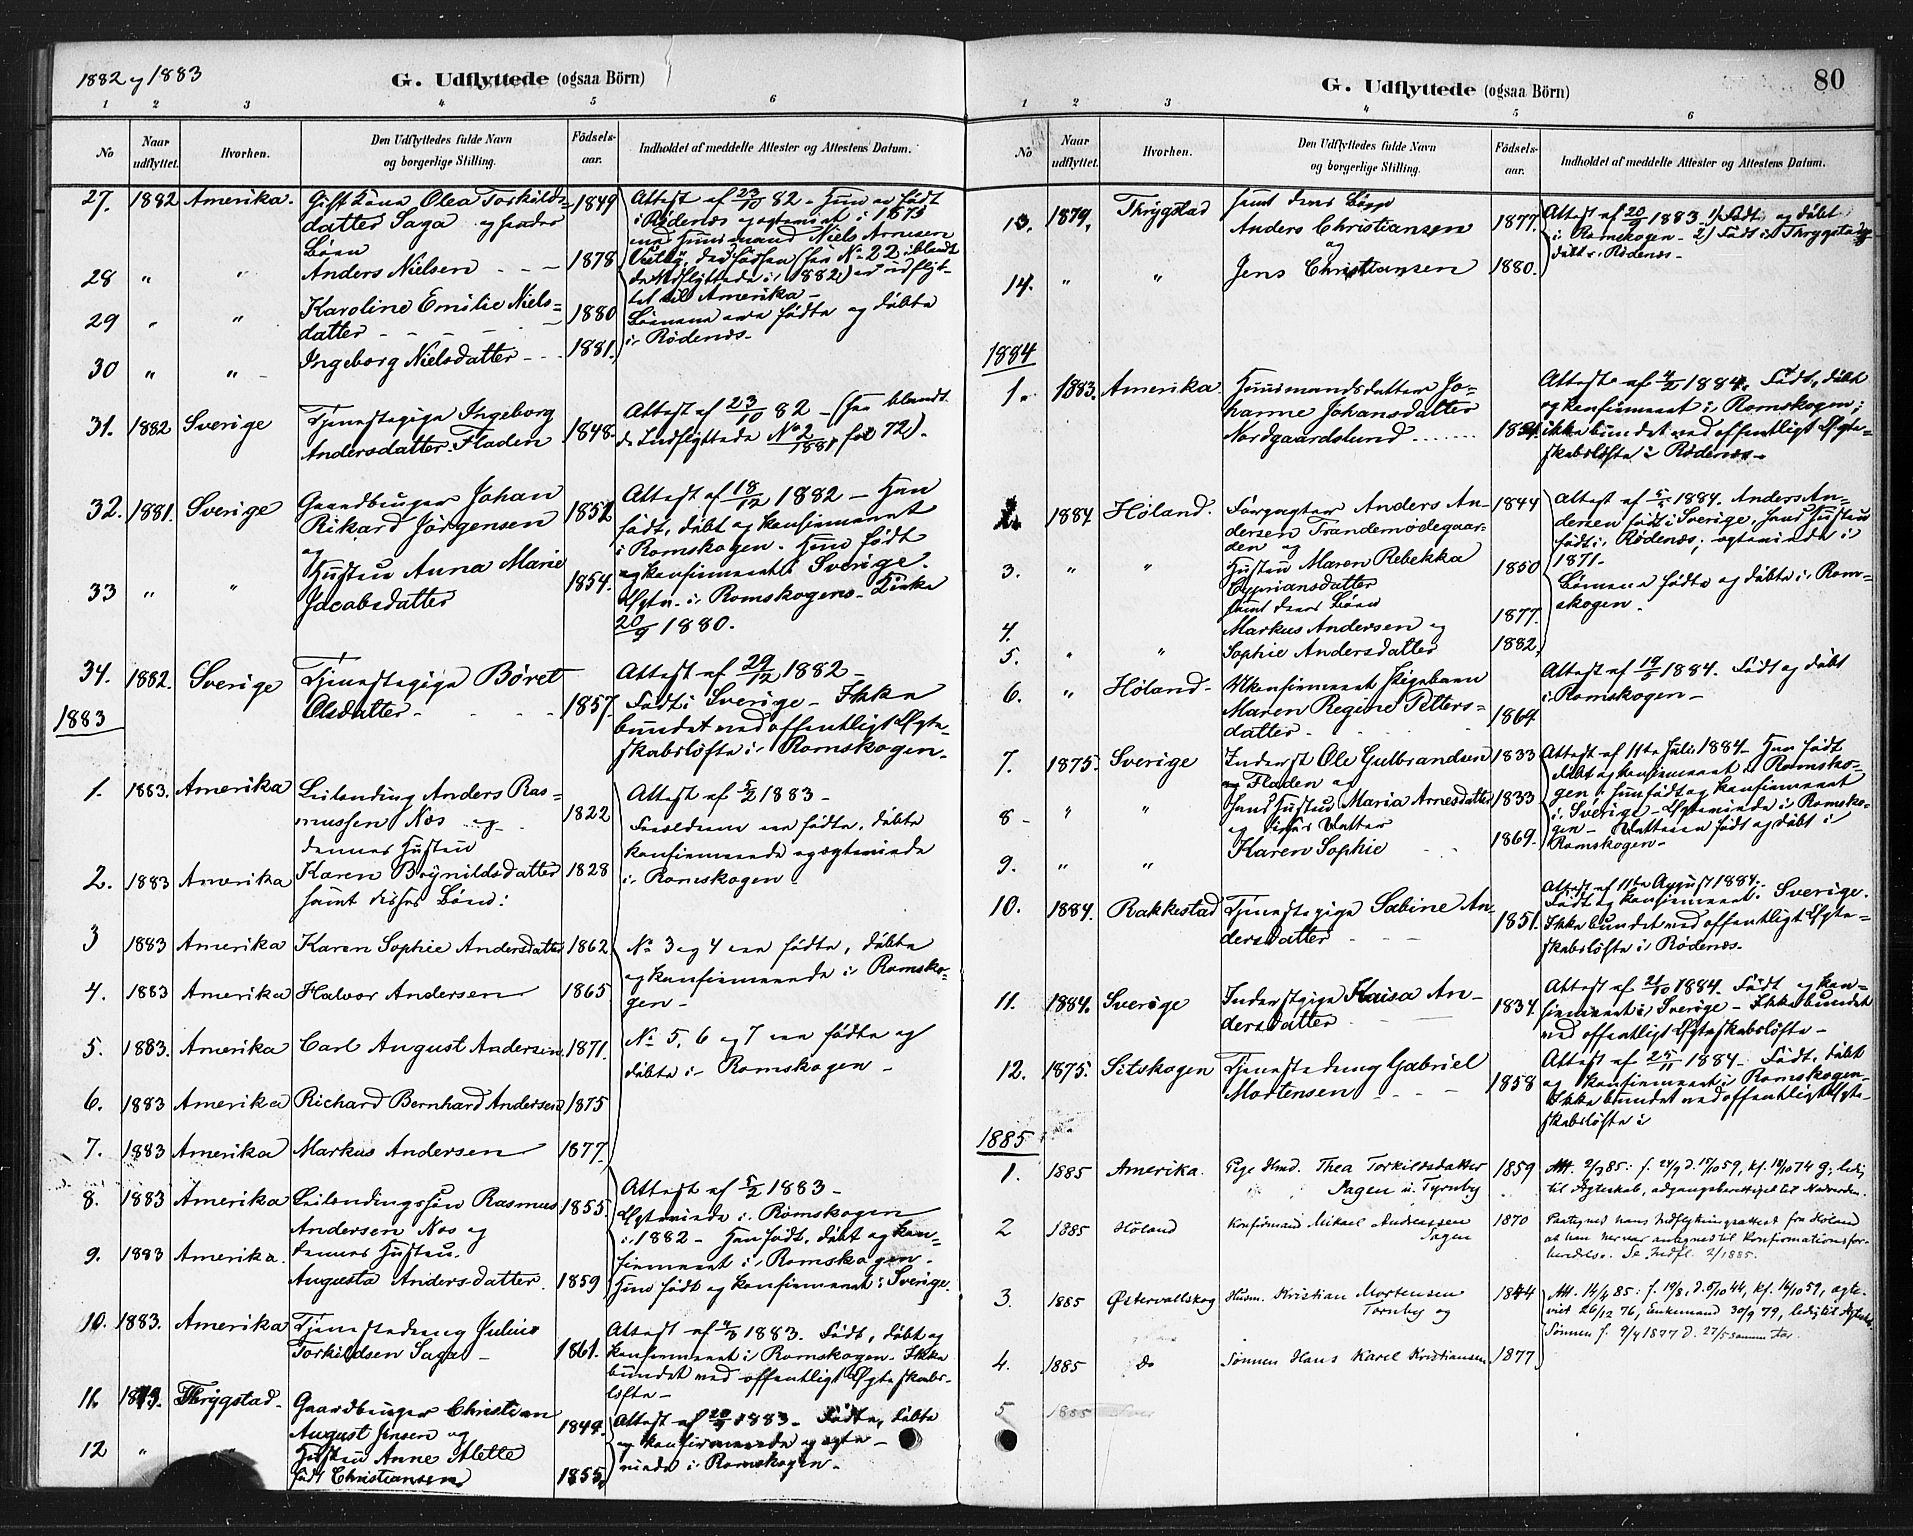 1882 og 1883
G. Udflyttede (ogsaa Börn)
1 2 3 4 5 6
No
Naar udflyttet.
Hvorhen.
Den Udflyttedes fulde Navn og borgerlige Stilling.
Födsels-aar.
Indholdet af meddelte Attester og Attestens Datum.
27. 1882 Amerika. Gift Kone Olea Torkilds- 1849 Attest af 23/10 82 - Hun er født
datter Saga og hendes i Rødenæs og egteviet i 1873
Børn med Huusmand Niels Arnesen
28 " " Anders Nielsen - - - 1878 
de Udflyttede i 1882) er udflyt-
tet til Amerika -
29 " " Karoline Emilie Niels- 1880 Børnene ere fødte og døbte
datter - - - i Rødenæs -
30 " " - Ingeborg Nielsdatter - - 1881.
31. 1882 Sverige Tjenestepige Ingeborg 1848. Attest af 23/10 82 - (see blandt
Andersdatter Fladen de Indflyttede No 2/1881 fol 72).
32. 1881. Sverige Gaardbruger Johan 1852 Attest af 18/12 1882 - Han
Rikard Jørgensen født, døbt og konfirmeret
og i Romskogen. Hun født
33 " " Hustru Anna Marie 1854. og konfirmeret i Sverige.
Jacobsdatter Egtev. i Romskogens Kirke
20/9 1880.
34. 1882. Sverige Tjenestepige Børet Attest af 29/12 1882 -
Olsdatter - - - 1857. Født i Sverige - Ikke
bundet ved offentligt Egte-
skabsløfte i Romskogen -
1883
1. 1883. Amerika Leilending Anders Ras- 1822 Attest af 5/2 1883 -
mussen Nos og Forældrene ere fødte, døbte
dennes Hustru konfirmerede og egteviede
2. 1883 Amerika Karen Brynildsdatter 1828 i Romskogen -
samt disses Børn:
3 1883 Amerika Karen Sophie Andersdatter 1862 No 3 og 4 ere fødte, døbte
og konfirmerede i Romsko-
4. 1883 Amerika Halvor Andersen 1865 gen -
5. 1883. Amerika Carl August Andersen 1871. No 5, 6 og 7 ere fødte og
døbte i Romskogen -
6. 1883 Amerika Richard Bernhard Andersen 1875
7. 1883 Amerika Markus Andersen 1877.
8. 1883 Amerika Leilendingssøn Rasmus 1855. Attest af 5/2 1883 -
Andersen Nos og Egteviede i Romskogen
dennes Hustru. i 1882 - Han født, døbt og kon-
9. 1883 Amerika. firmeret i Romskogen -
Augusta Andersdatter. 1859 Hun født og konfirmeret i Sverige.
10. 1883. Amerika Tjenestedreng Julius Attest af 4/3 1883. Født, døbt og
Torkildsen Saga - 1861. konfirmeret i Romskogen. Ikke
bundet ved offentligt Egteskabs-
løfte -
11. 1879. Thrygstad - Gaardbruger Christian 1849. Attest af 20/9 1883 - Fødte, døbte
August Jensen og og konfirmerede og egte-
12 " Hustru Anne Alette viede i Romskogen -
født Christiansen 1855.
80
G. Udflyttede (ogsaa Börn)
1 2 3 4 5 6
No
Naar udflyttet.
Hvorhen.
Den Udflyttedes fulde Navn og borgerlige Stilling.
Födsels-aar.
Indholdet af meddelte Attester og Attestens Datum.
samt deres Børn
13. 1879. Thrygstad Anders Christiansen 1877. Attest af 20/9 1883 1) Født og døbt
og i Romskogen - 2) Født i Thrygstad
14. " " Jens Christiansen 1880. døbt i Rødenæs -
1884
1. 1883. Amerika Huusmandsdatter Jo- Attest af 4/2 1884. Født, døbt
hanne Johansdatter og konfirmeret i Romskogen;
Nordgaardslund ikke bundet ved offentligt Egte-
skabsløfte i Rødenæs -
1884 Høland. Forpagter Anders An- 1844 Attest af 5/5 1884. Anders An-
dersen Trandemødegaar- dersen født i Sverige, hans Hustru
den og født i Rødenæs; egteviede i
3. " " Hustru Maren Rebekka 1850 1871 -
Cypriansdatter Børnene fødte og døbte i Rom-
samt deres Børn skogen -
4. Markus Andersen og 1877.
5. " " Sophie Andersdatter 1882.
6. " Høland - Ukonfirmeret Pigebarn Attest af 19/5 1884. Født og døbt
Maren Regine Petters- 1869 i Romskogen -
datter -
7. 1875. Sverige Inderst Ole Gulbrandsen 1833 Attest af 11te Juli 1884 - Han født
Fladen og døbt og konfirmeret i Romsko-
8 - " " hans Hustru Maria Arnesdatter 1833 gen, hun født og konfirmeret
og disses Datter i Sverige - Egteviede i Romsko-
9. " " Karen Sophie - - 1869. gen - Datteren født og døbt i
Romskogen -
10. 1884. Rakkestad Tjenestepige Sabine An- 1851. Attest af 11te August 1884.
dersdatter - - - Født og konfirmeret i Sverige.
Ikke bundet ved offentligt Egte-
skabsløfte i Rødenæs -
11. 1884. Sverige Inderstpige Kaisa An- 1834 Attest af 21/10 1884. Født og kon-
dersdatter firmeret i Sverige - Ikke bundet
ved offentligt Egteskabsløfte -
12. 1875. Sitskogen Tjenestedreng Gabriel 1858 Attest af 25/11 1884 - Født, døbt
Mortensen - - - og konfirmeret i Romskogen -
Ikke bundet ved offentligt Egte-
skabsløfte i
1885
1. 1885 Amerika. Pige Thea Torkildsdatter 1859 Att. 2/3 85: ledig
Sagen u. Tyrnby til Ægteskab, adgangsberettiget til Nadverden.
2 1885 Høland Konfirmand Mikael Andreassen 1870 Paategned hans Indflytningsattest fra Høland
Sagen at han her var antegnet til Konfirmationsfor-
beredelse. Se Indfl. 2/1885.
3. 1885 Østervallskog Husm. Kristian Mortensen 1844 Att. 14/4 85: f. 19/8, d. 6/10 44, kf. 16/10 59, egte-
Tornby og viet 26/12 76, Enkemand 30/9 79, ledig til Ægtesk.
Sønnen f. 9/4 1877 d. 27/5 samme Aar.
4. 1885 do Sønnen Hans Karel Kristiansen 1877
5 1885